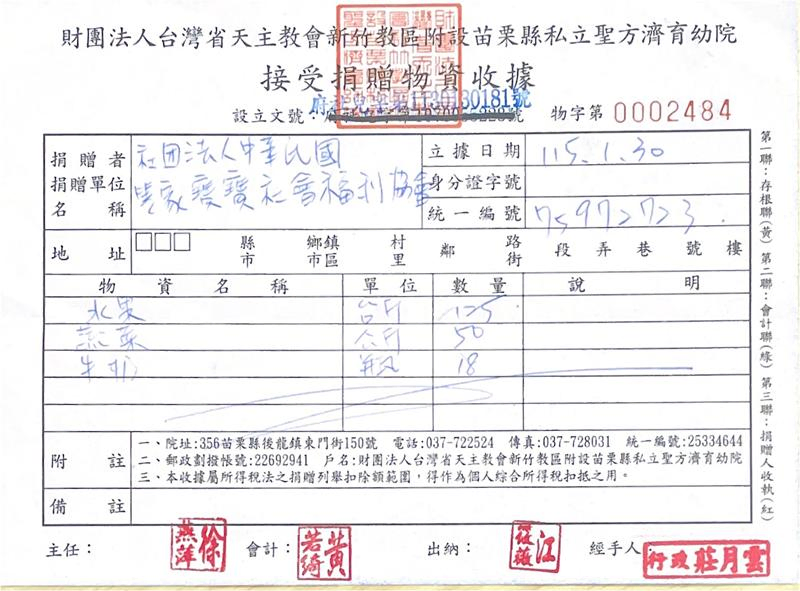 財團法人台灣省天主教會新竹教區附設苗栗縣私立聖方濟育幼院
接受捐贈物資收據
設立文號： 府社兒字第1130130181號
物字第 0002484
捐贈者
捐贈單位
名稱
社团法人中華民國
異家寶寶社會福利協會
立據日期 115.1.30
身分證字號
統一編號 75972723
地址 縣市 鄉鎮市區 村里 鄰 路街 段 弄 巷 號 樓
物資名稱 單位 數量 說明
水果 台斤 125
蔬菜 公斤 50
牛奶 瓶 18
附註
一、院址:356苗栗縣後龍鎮東門街150號 電話:037-722524 傳真:037-728031 統一編號:25334644
二、郵政劃撥帳號:22692941 戶名:財團法人台灣省天主教會新竹教區附設苗栗縣私立聖方濟育幼院
三、本收據屬所得稅法之捐贈列舉扣除額範圍，得作為個人綜合所得稅扣抵之用。
備註
主任： 徐燕萍 會計： 黃若綺 出納： 江筱薇 經手人： 行政莊月雲
第一聯：存根聯(黃) 第二聯：會計聯(綠) 第三聯：捐贈人收執(紅)